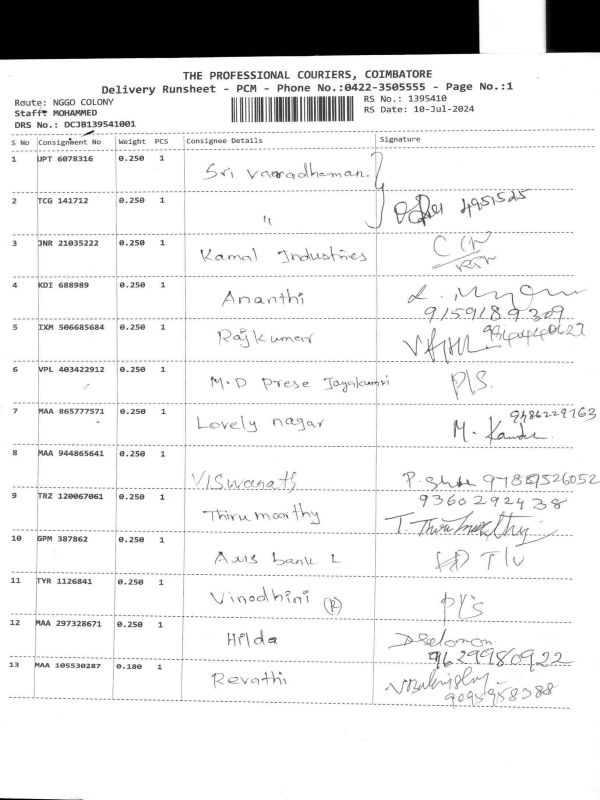 THE PROFESSIONAL COURIERS, COIMBATORE
Delivery Runsheet - PCM - Phone No.:0422-3505555 - Page No.:1
Route: NGGO COLONY
RS No.: 1395410
Staff: MOHAMMED
RS Date: 10-Jul-2024
DRS No.: DCJB139541001
S No Consignment No Weight PCS Consignee Details Signature
1 UPT 6078316 0.250 1 Sri Varadhaman.
2 TCG 141712 0.250 1 " 4951525
3 JNR 21035222 0.250 1 Kamal Industries
4 KDI 688989 0.250 1 Ananthi
9159189309
5 IXM 506685684 0.250 1 Rajkumar
6 VPL 403422912 0.250 1 M.D Prese Jayakumri P/S.
7 MAA 865777571 0.250 1 Lovely nagar M.
8 MAA 944865641 0.250 1 Viswanath P.
9 TRZ 120067061 0.250 1 Thirumoorthy 9360292438
T. Thirumoorthy
10 GPM 387862 0.250 1 Axis bank L
11 TYR 1126841 0.250 1 Vinodhini (R) p/s
12 MAA 297328671 0.250 1 Hilda DSolomon
9629980922
13 MAA 105530287 0.180 1 Revathi
9095958388